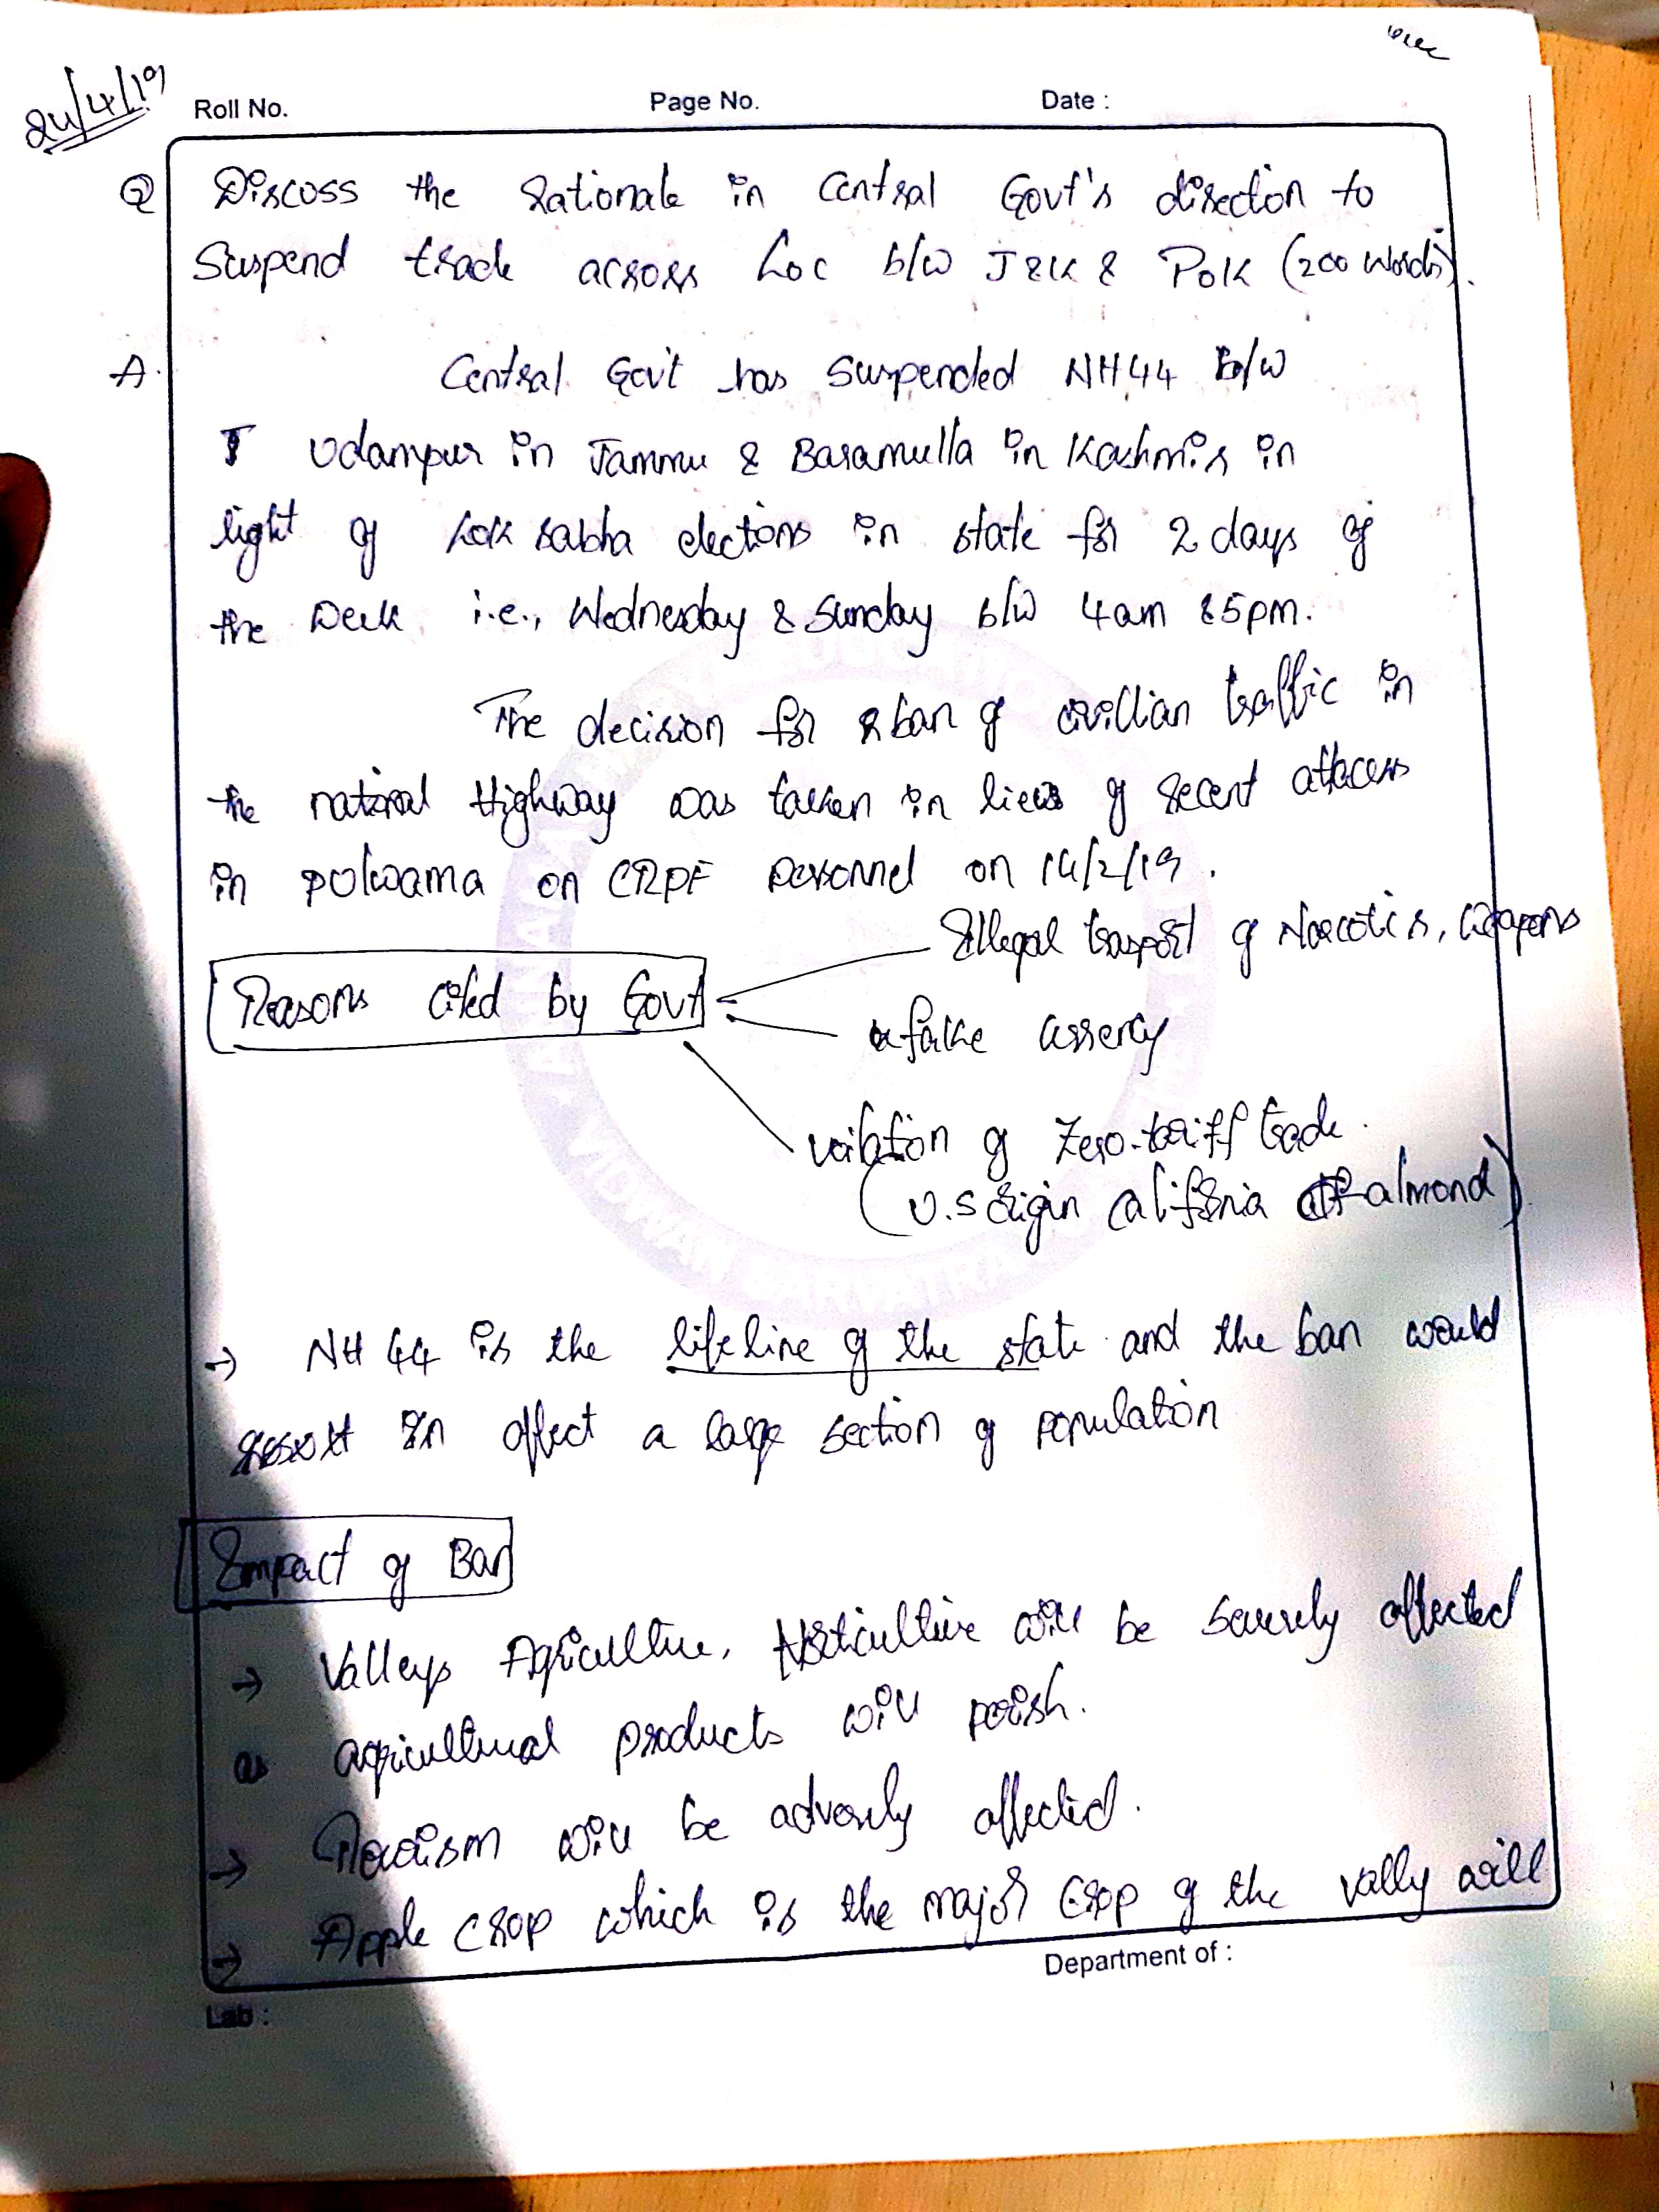 24/4/19
Roll No. Page No. Date :
Q Discuss the Rationale in Central Govt's direction to
Suspend trade across LoC b/w J&K & PoK (200 words).
A. Central Govt has suspended NH44 B/w
Udampur in Jammu & Baramulla in Kashmir in
light of Lok sabha elections in state for 2 days of
the week i.e., Wednesday & Sunday b/w 4am &5pm.
The decision for ban of civillian traffic in
the national Highway was taken in lieu of recent attacks
in pulwama on CRPF personnel on 14/2/19.
Illegal trasport of Narcotics, Weapons
Reasons cited by Govt
fake
voilation of Zero-tariff trade.
(U.S origin California almond)
→ NH 44 is the lifeline of the state and the ban would
result in affect a large section of population
Impact of Ban
→ Valleys Agriculture, Horticulture will be severely affected
as agricultural products will perish.
→ Tourism will be adversely affected.
→ Apple crop which is the major crop of the vally will
Department of :
Lab :
VIDWAN SARVATRA